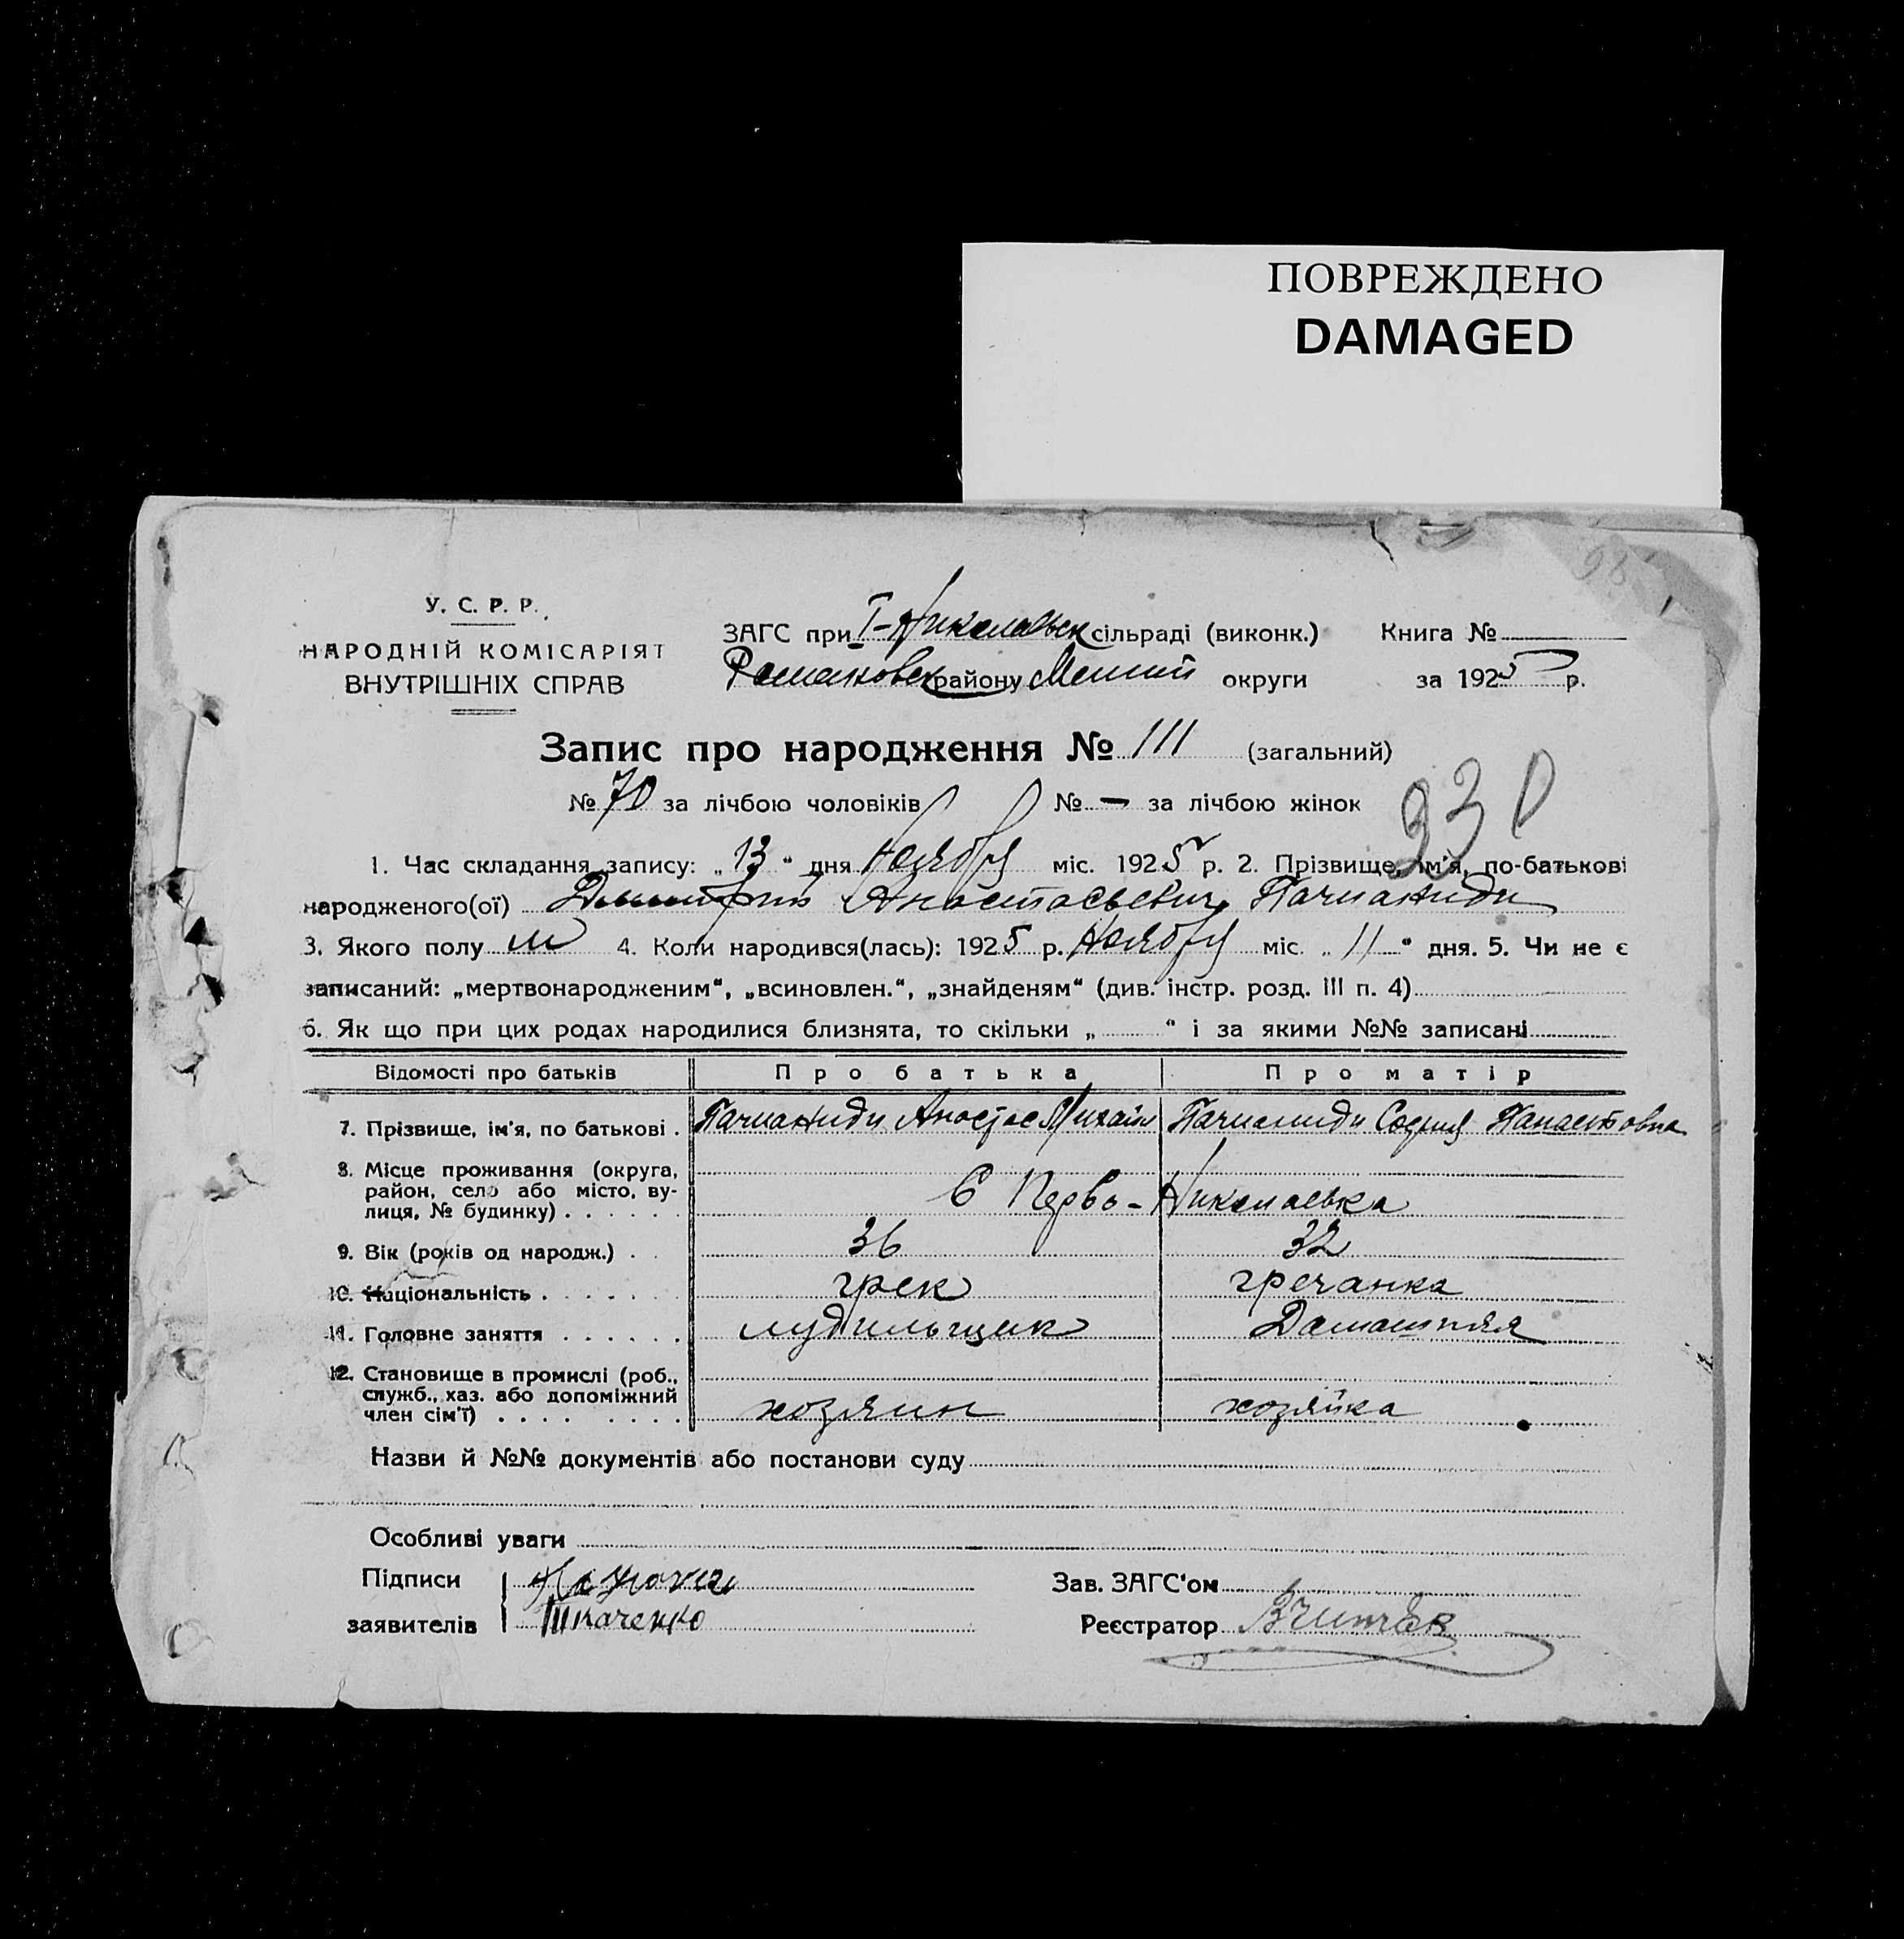 ПОВРЕЖДЕНО
DAMAGED
У. С. Р. Р.
НАРОДНІЙ КОМІСАРІЯТ
ВНУТРІШНІХ СПРАВ
ЗАГС при І-Николаевск сільраді (виконк.) Книга №
району округи за 1925 р.
Запис про народження № 111 (загальний)
№ 70 за лічбою чоловіків № — за лічбою жінок
930
1. Час складання запису: „13“ дня Ноября міс. 1925 р. 2. Прізвище, ім'я, по-батькові
народженого(ої) Димитрий Анастасьевич Пачманиди
3. Якого полу м 4. Коли народився(лась): 1925 р. Ноября міс. „11“ дня. 5. Чи не є
записаний: „мертвонародженим“, „всиновлен.“, „знайденям“ (див. інстр. розд. III п. 4)
6. Як що при цих родах народилися близнята, то скільки „ “ і за якими №№ записані
Відомості про батьків Про батька Про матір
7. Прізвище, ім'я, по батькові . Пачманиди Анастас Михайл Пачманиди София
8. Місце проживання (округа,
район, село або місто, ву-
лиця, № будинку) . . . . . . С Перво-Николаевка
9. Вік (років од народж.) . . 36 32
10. Національність . . . . . . грек гречанка
11. Головне заняття . . . . . . лудильщик Домашняя
12. Становище в промислі (роб.,
служб., хаз. або допоміжний
член сім'ї) . . . . . . . . хозяин хозяйка
Назви й №№ документів або постанови суду
Особливі уваги
Підписи Зав. ЗАГС'ом
заявителів Ткаченко Реєстратор